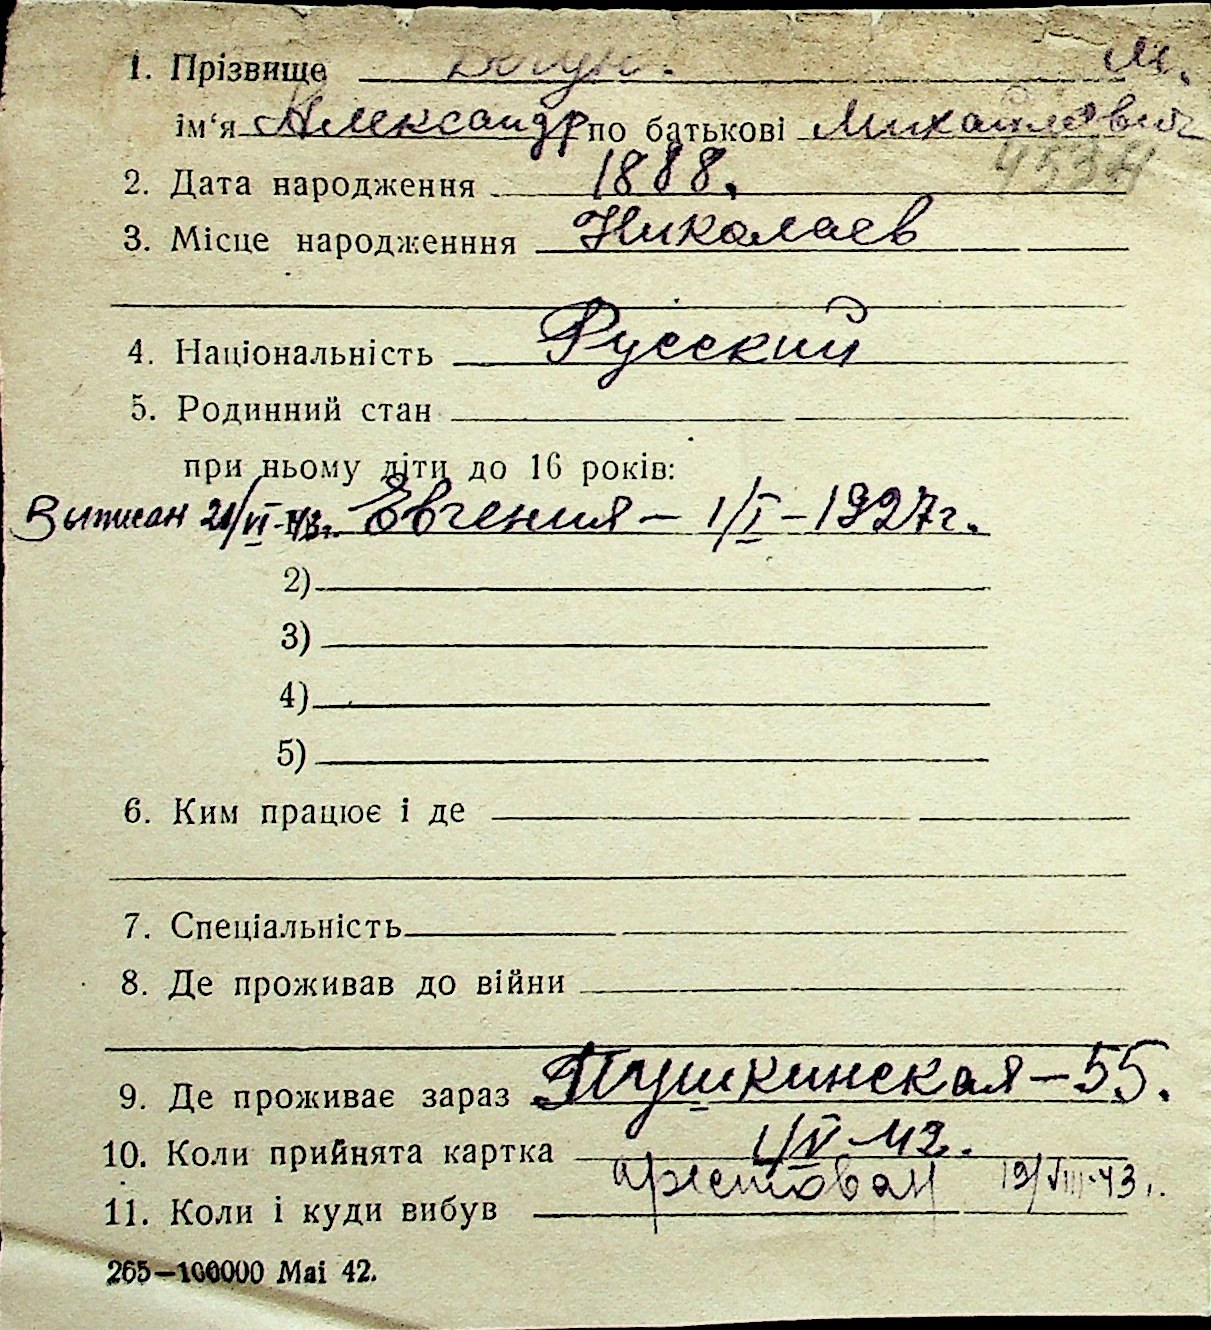 1. Прізвище Бегун. М.
ім'я Александр по батькові Михайлович
4534
2. Дата народження 1888.
3. Місце народженння Николаев
4. Національність Русский
5. Родинний стан
при ньому діти до 16 років:
Выписан 20/VI-43г. Евгения – 1/I – 1927г.
2)
3)
4)
5)
6. Ким працює і де
7. Спеціальність
8. Де проживав до війни
9. Де проживає зараз Пушкинская – 55.
10. Коли прийнята картка 1/IV-42.
арестован 19/VIII-43г.
11. Коли і куди вибув
265—100000 Mai 42.